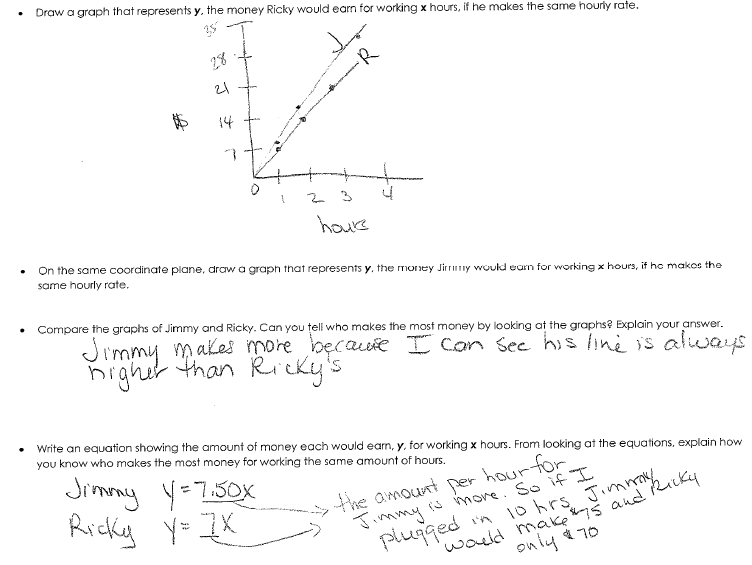 • Draw a graph that represents y, the money Ricky would earn for working x hours, if he makes the same hourly rate.
35
J
R
28
21
$ 14
7
0 1 2 3 4
hours
• On the same coordinate plane, draw a graph that represents y, the money Jimmy would earn for working x hours, if he makes the
same hourly rate.
• Compare the graphs of Jimmy and Ricky. Can you tell who makes the most money by looking at the graphs? Explain your answer.
Jimmy makes more because I can see his line is always
higher than Ricky's
• Write an equation showing the amount of money each would earn, y, for working x hours. From looking at the equations, explain how
you know who makes the most money for working the same amount of hours.
Jimmy y = 7.50x
Ricky y = 7x
the amount per hour for
Jimmy is more. So if I
plugged in 10 hrs, Jimmy
would make $75 and Ricky
only $70